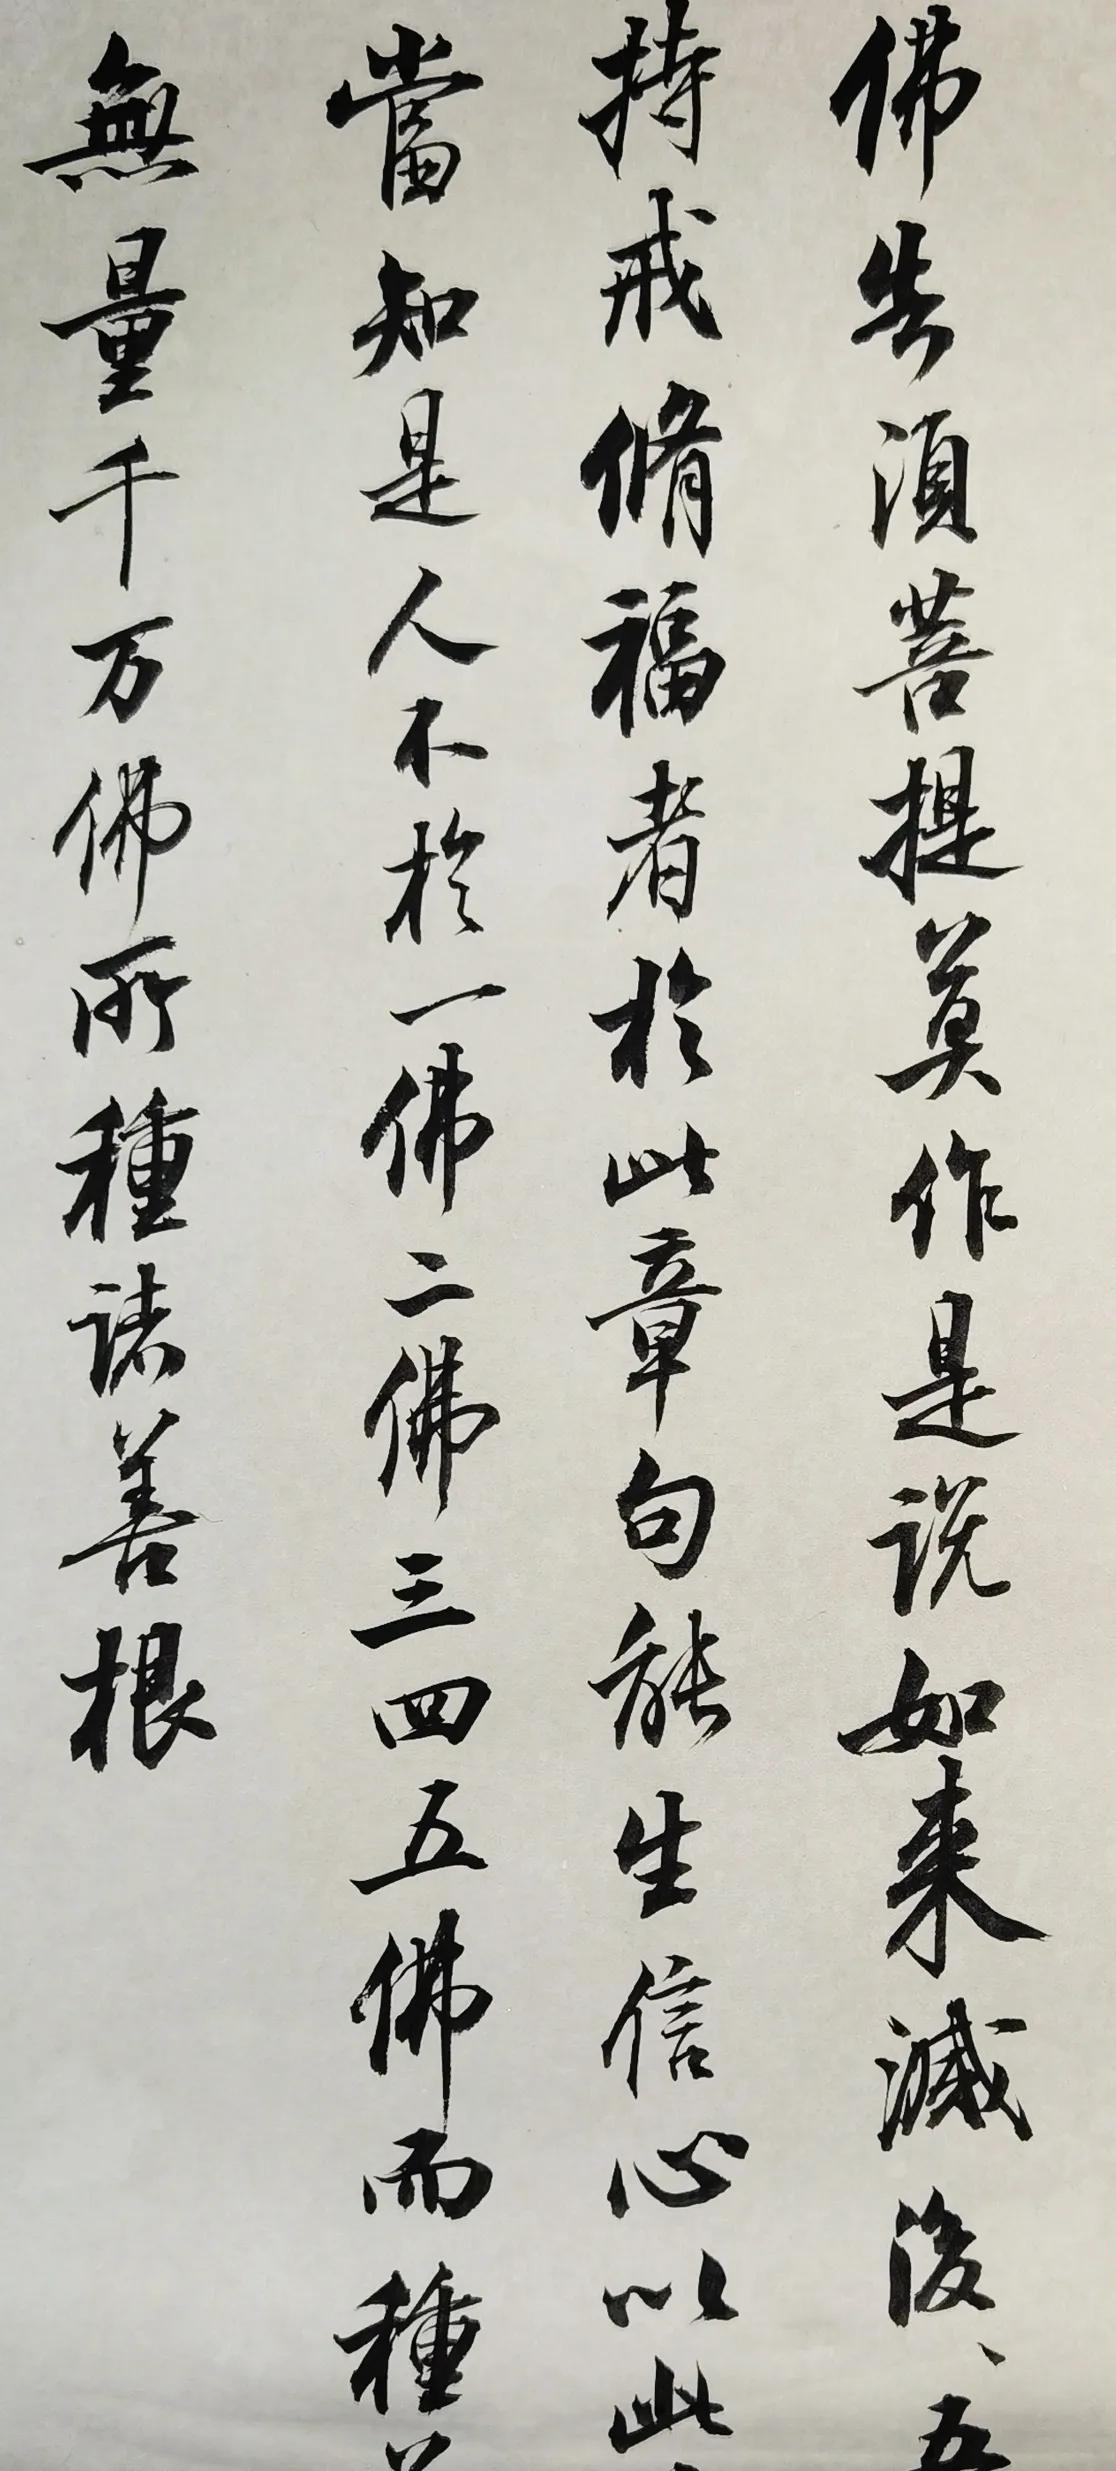 佛告湏菩提莫作是説如来滅後、五
持戒脩福者於此章句能生信心以此
當知是人不於一佛二佛三四五佛而種
無量千万佛所種諸善根